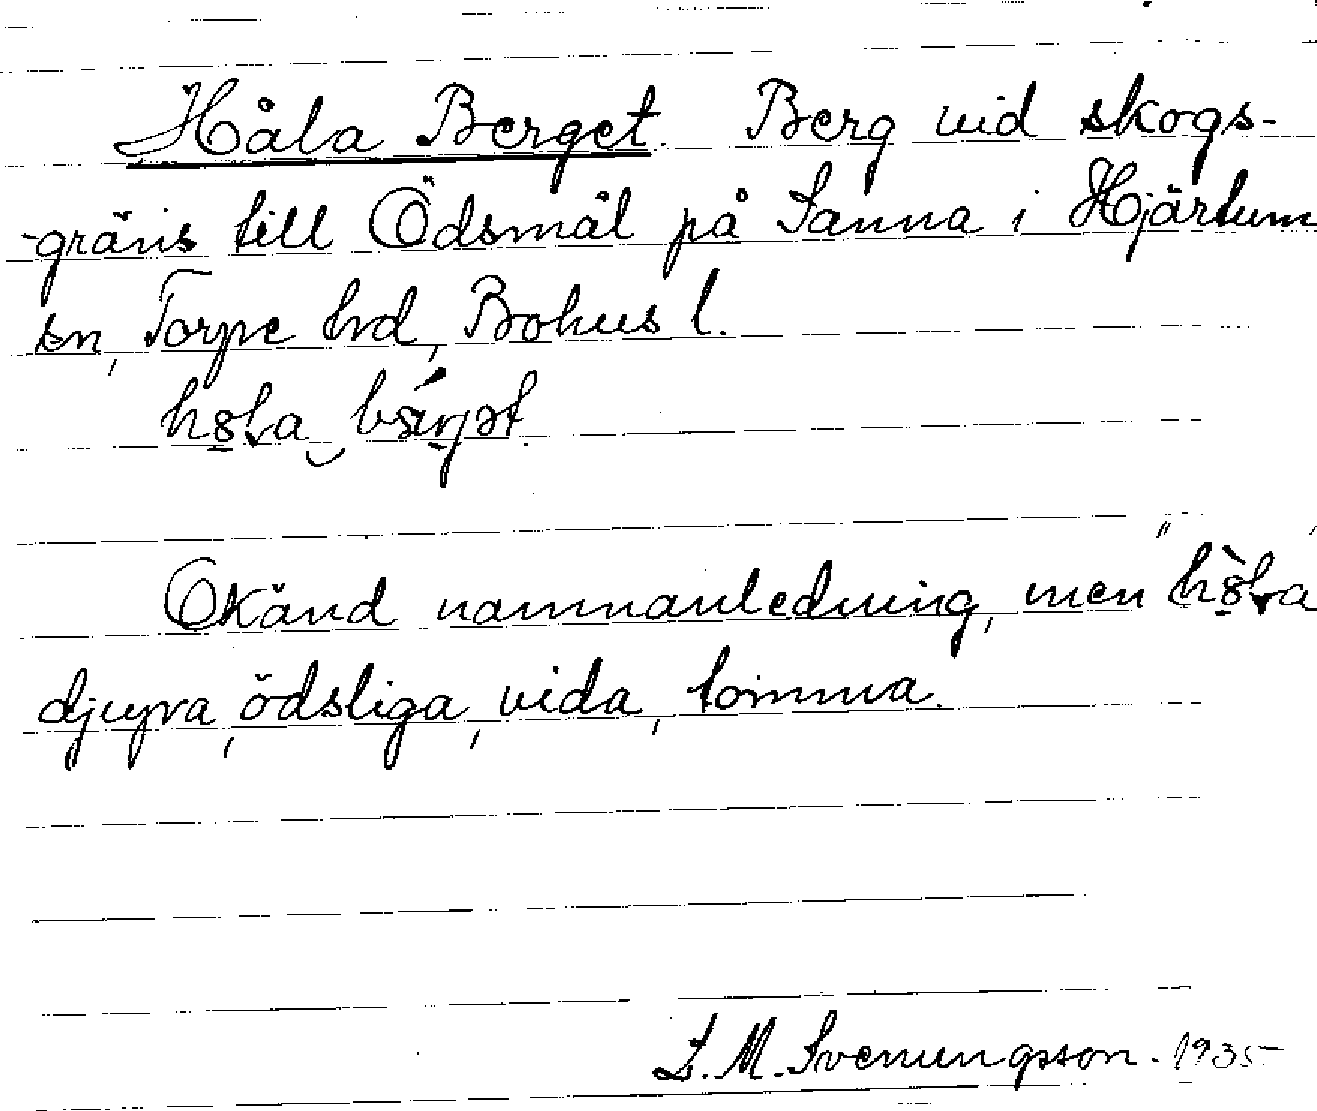 Håla Berget. Berg vid skogs-
-gräns till Ödsmål på Sanna i Hjärtum
sn, Torpe hrd, Bohus l.
Okänd namnanledning, men "
djupa, ödsliga, vida, tomma.
S. M. Svenungsson. 1935